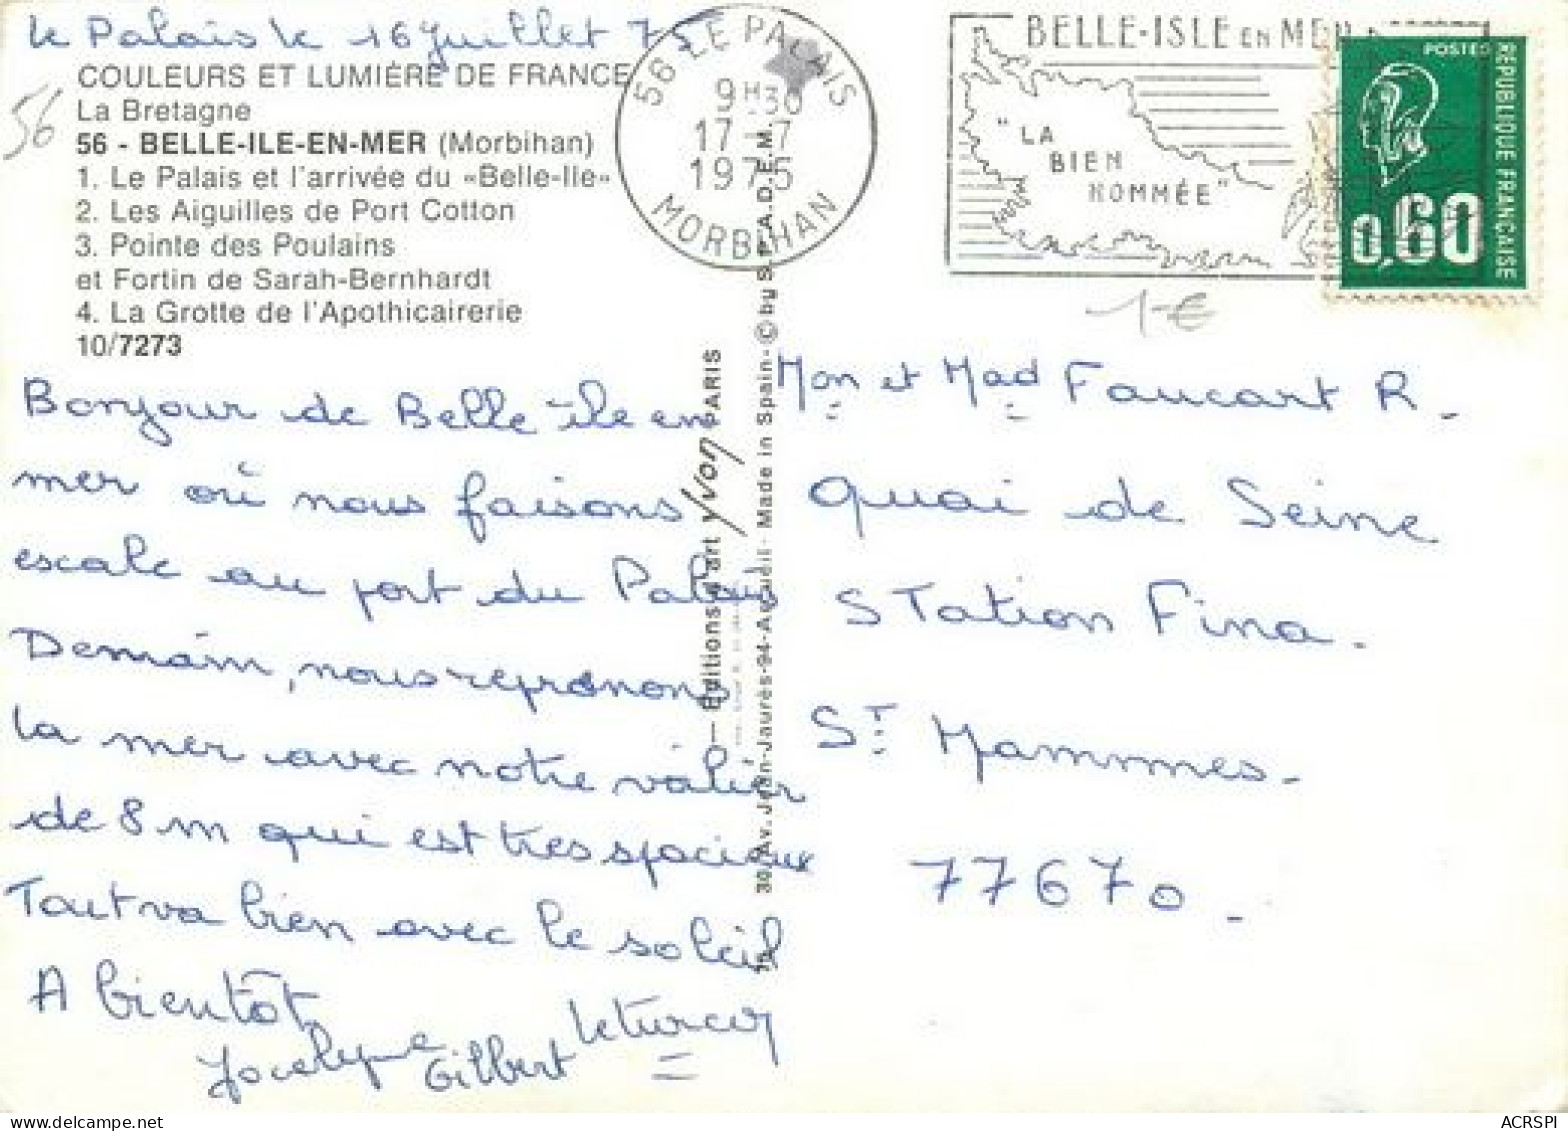 Le Palais le 16 Juillet 75
COULEURS ET LUMIÈRE DE FRANCE
La Bretagne
56 - BELLE-ILE-EN-MER (Morbihan)
1. Le Palais et l'arrivée du «Belle-Ile»
2. Les Aiguilles de Port Cotton
3. Pointe des Poulains
et Fortin de Sarah-Bernhardt
4. La Grotte de l'Apothicairerie
10/7273
56
56 LE PALAIS
9H30
17-7
1975
MORBIHAN
BELLE-ISLE EN MER
"LA
BIEN
NOMMÉE"
POSTES
RÉPUBLIQUE FRANÇAISE
0,60
1 €
Bonjour de Belle-île en
mer où nous faisons
escale au port du Palais
Demain, nous reprenons
la mer avec notre
de 8 m qui est très spacieux
Tout va bien avec le soleil
A bientôt
Jocelyne Gilbert Leturcq
— Editions d'art Yvon PARIS
30, Av. Jean-Jaurès-94-Arcueil- Made in Spain-© by S.P.A.D.E.M.
Mon et Mad Faucart R.
Quai de Seine
Station Fina.
St Mammes.
77670.
ACRSPI